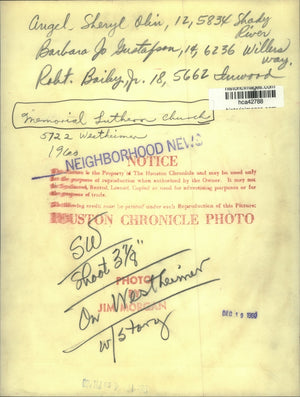 Angel. Sheryl Olin, 12, 5834 Shady
River
Barbara Jo Gustafson, 14, 6236 Willers
Way.
Robt. Bailey, Jr. 18, 5662 Inwood
historicimages.com
hca42788
Memorial Lutheran Church
5722 Westheimer
1960
NEIGHBORHOOD NEWS
NOTICE
is the Property of The Houston Chronicle and may be used only
for the purposes of reproduction when authorized by the Owner. It may not
be Syndicated, Rented, Loaned, Copied or used for advertising purposes or for
purposes of trade.
The following credit must be printed under each Reproduction of this Picture:
HOUSTON CHRONICLE PHOTO
SW
Shoot 3 7/8"
PHOTO
BY
JIM MORGAN
On Westheimer
w/story
DEC 10 1960